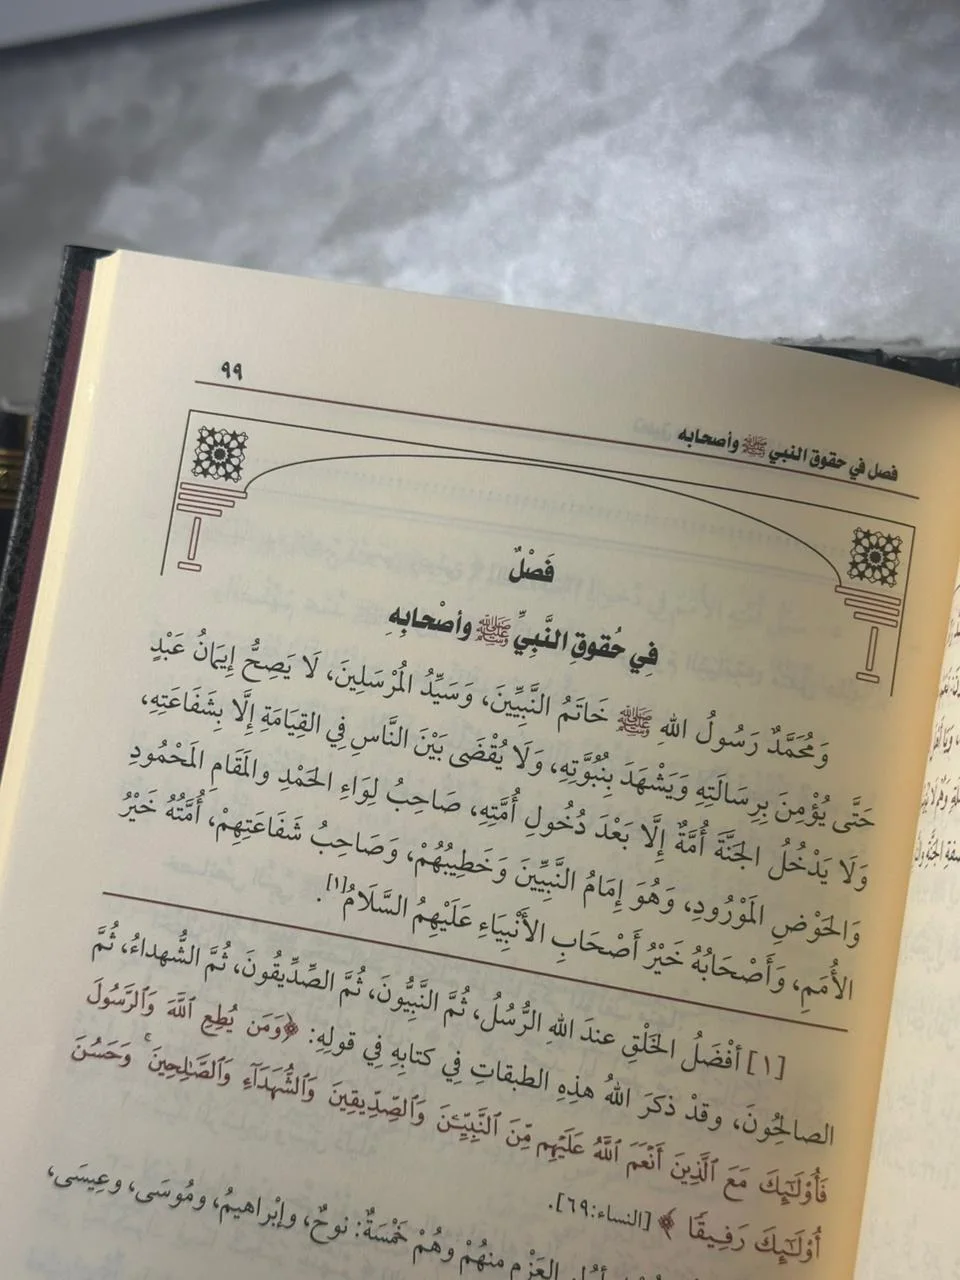 ٩٩
فصل في حقوق النبي ﷺ وأصحابه
فَصْلٌ
فِي حُقوقِ النَّبِيِّ ﷺ وأصْحابِهِ
وَمُحَمَّدٌ رَسُولُ اللهِ ﷺ خَاتَمُ النَّبِيِّينَ، وَسَيِّدُ المُرْسَلِينَ، لَا يَصِحُّ إِيمَانُ عَبْدٍ
حَتَّى يُؤْمِنَ بِرِسَالَتِهِ وَيَشْهَدَ بِنُبُوَّتِهِ، وَلَا يُقْضَى بَيْنَ النَّاسِ فِي القِيَامَةِ إِلَّا بِشَفَاعَتِهِ،
وَلَا يَدْخُلُ الجَنَّةَ أُمَّةٌ إِلَّا بَعْدَ دُخُولِ أُمَّتِهِ، صَاحِبُ لِوَاءِ الحَمْدِ والمَقَامِ المَحْمُودِ
وَالحَوْضِ المَوْرُودِ، وَهُوَ إِمَامُ النَّبِيِّينَ وَخَطِيبُهُمْ، وَصَاحِبُ شَفَاعَتِهِمْ، أُمَّتُهُ خَيْرُ
الأُمَمِ، وَأَصْحَابُهُ خَيْرُ أَصْحَابِ الأَنْبِيَاءِ عَلَيْهِمُ السَّلَامُ[١].
[١] أفْضَلُ الخَلْقِ عندَ اللهِ الرُّسُلُ، ثُمَّ النَّبِيُّونَ، ثُمَّ الصِّدِّيقُونَ، ثُمَّ الشُّهداءُ، ثُمَّ
الصالِحُونَ، وقدْ ذكرَ اللهُ هذِهِ الطبقاتِ فِي كتابِهِ فِي قولِهِ: ﴿وَمَن يُطِعِ ٱللَّهَ وَٱلرَّسُولَ
فَأُوْلَٰٓئِكَ مَعَ ٱلَّذِينَ أَنْعَمَ ٱللَّهُ عَلَيْهِم مِّنَ ٱلنَّبِيِّـۧنَ وَٱلصِّدِّيقِينَ وَٱلشُّهَدَآءِ وَٱلصَّٰلِحِينَۚ وَحَسُنَ
أُوْلَٰٓئِكَ رَفِيقًا﴾ [النساء:٦٩].
العَزْمِ منهُمْ وهُمْ خَمْسَةٌ: نوحٌ، وإبْراهيمُ، ومُوسَى، وعِيسَى،